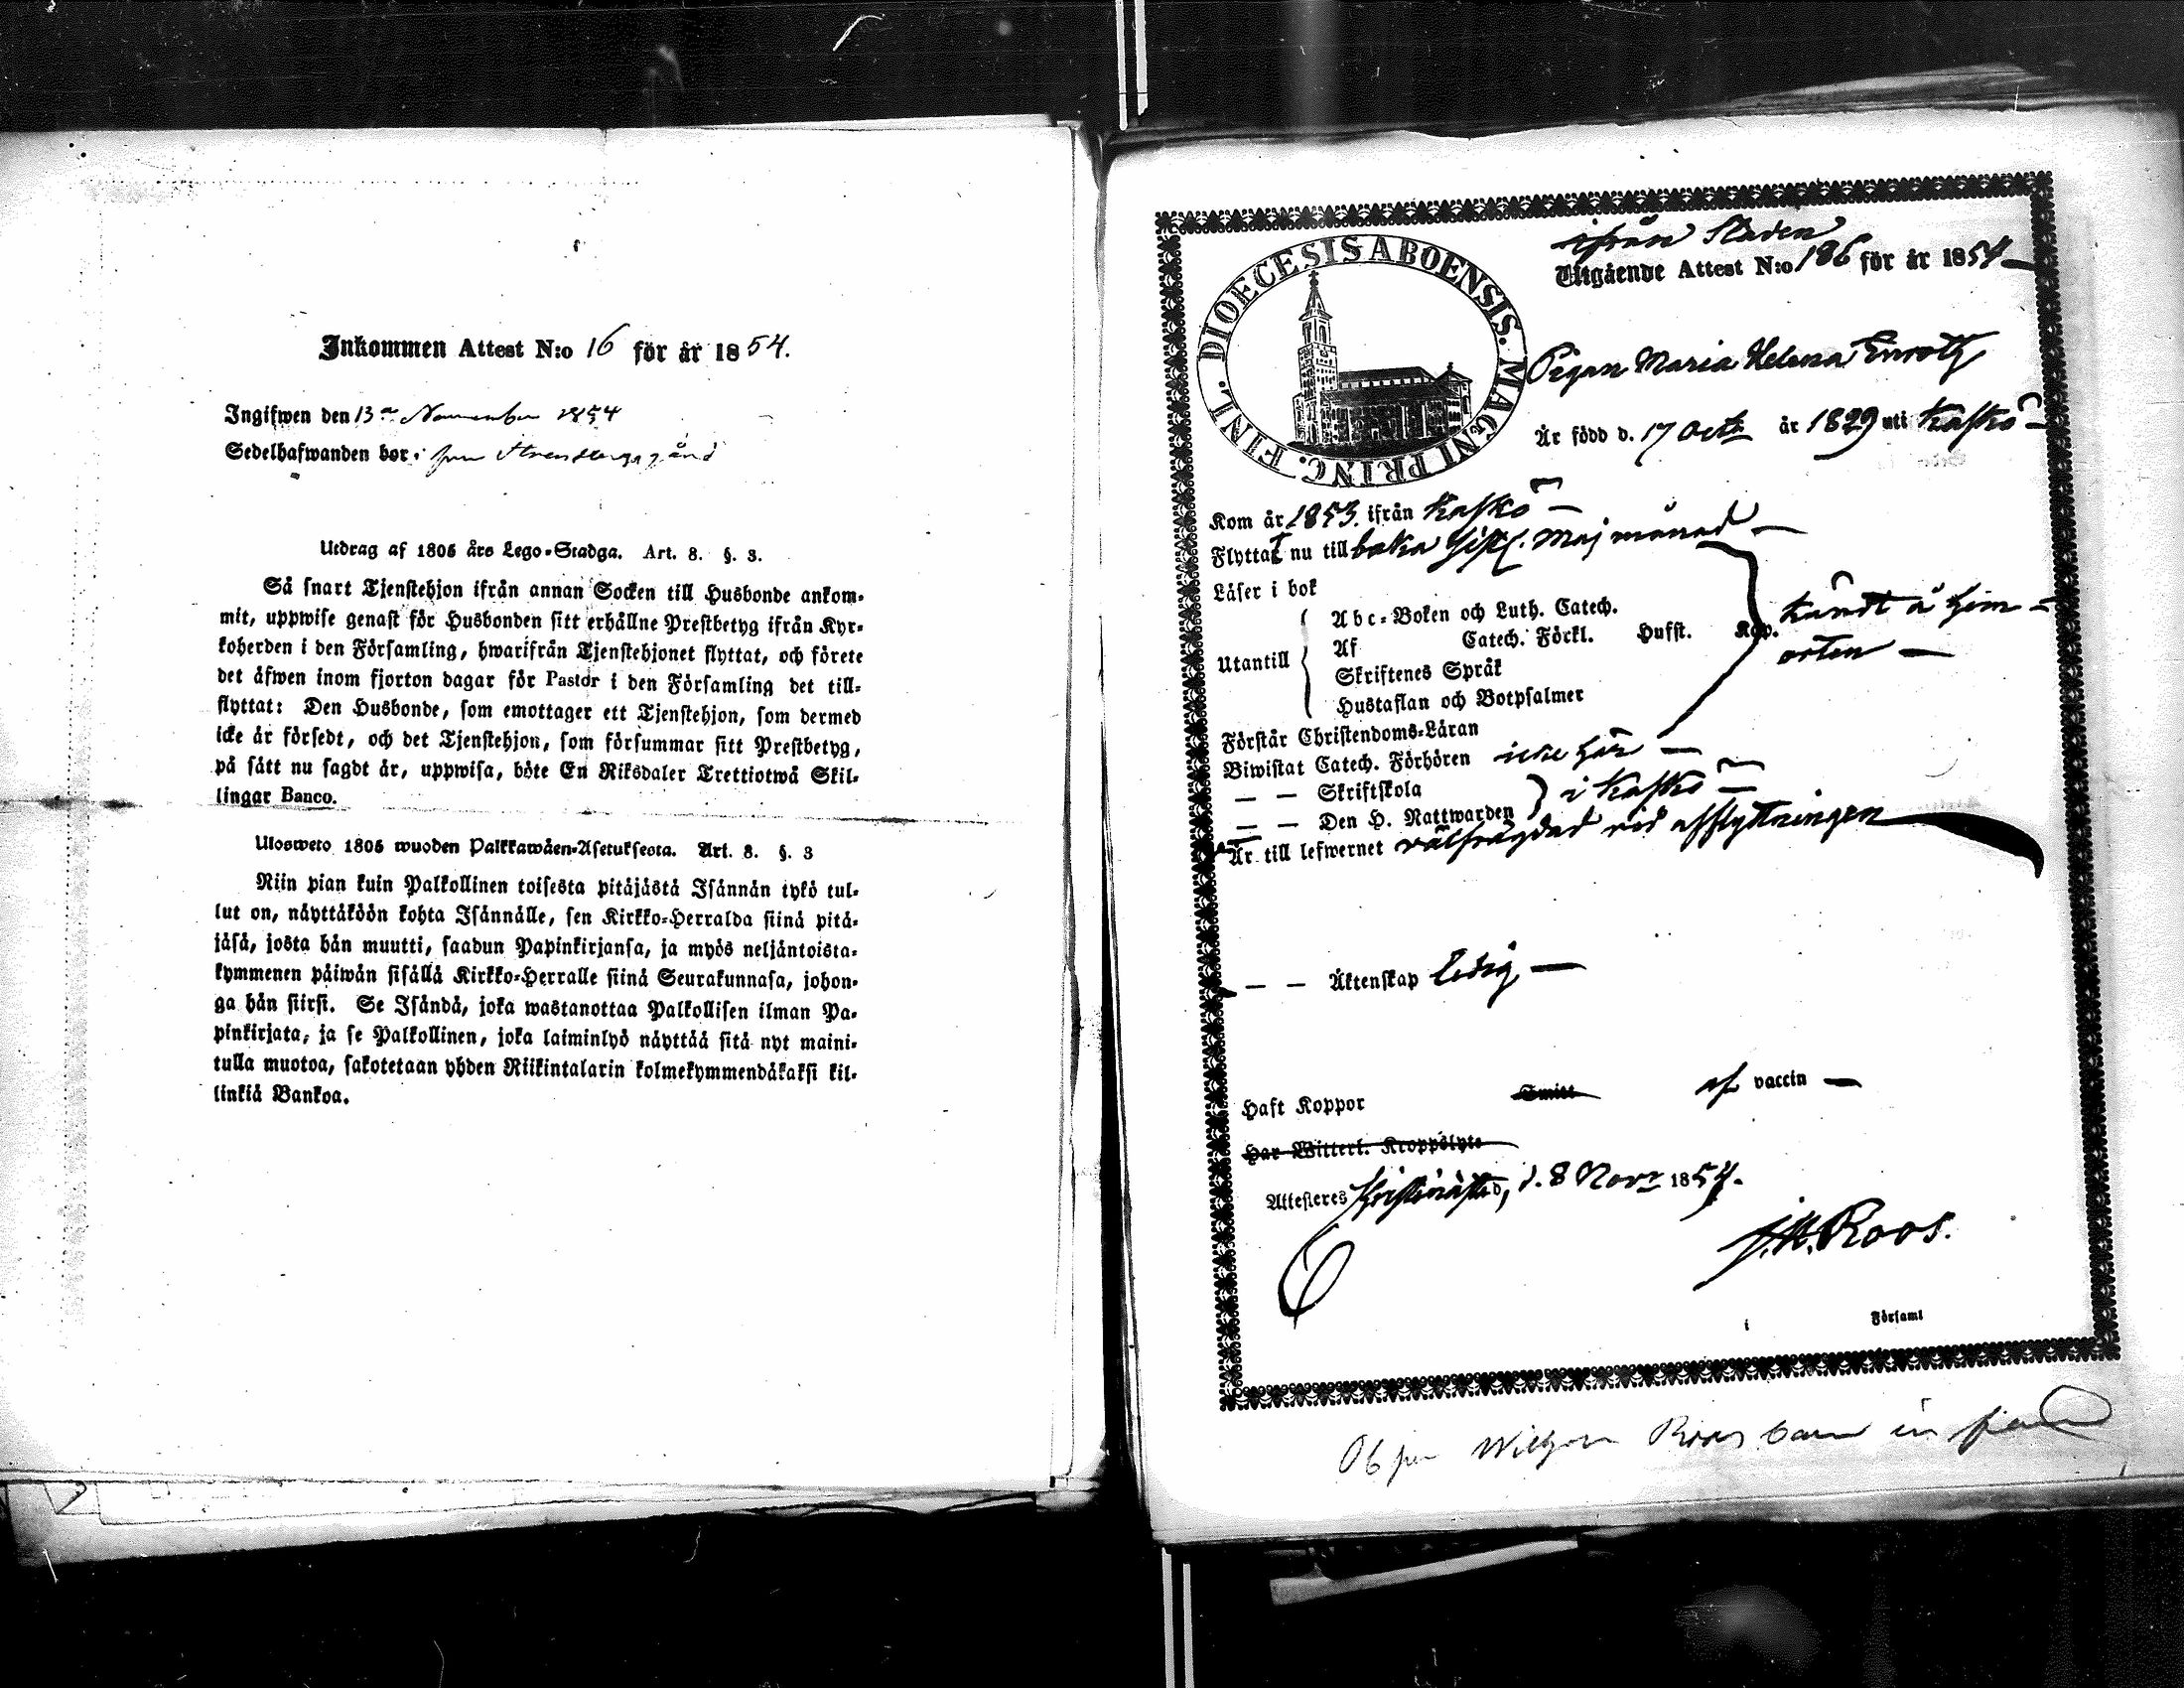 Inkommen Attest N:o 16 för år 1854.
Ingifwen den 13de November 1854
Sedelhafwanden bor i
Utdrag af 1805 års Lego-Stadga. Art. 8. §. 3.
Så snart Tjenstehjon ifrån annan Socken till Husbonde ankom-
mit, uppwise genast för Husbonden sitt erhållne Prestbetyg ifrån Kyr-
koherden i den Församling, hwarifrån Tjenstehjonet flyttat, och förete
det äfwen inom fjorton dagar för Pastor i den Församling det till-
flyttat: Den Husbonde, som emottager ett Tjenstehjon, som dermed
icke är försedt, och det Tjenstehjon, som försummar sitt Prestbetyg,
på sätt nu sagdt är, uppwisa, böte En Riksdaler Trettiotwå Skil-
lingar Banco.
Ulosweto 1805 wuoden Palkkawäen-Asetuksesta. Art. 8. §. 3
Niin pian kuin Palkollinen toisesta pitäjästä Isännän tykö tul-
lut on, näyttäköön kohta Isännälle, sen Kirkko-Herralda siinä pitä-
jäsä, josta hän muutti, saadun Papinkirjansa, ja myös neljäntoista-
kymmenen päiwän sisällä Kirkko-Herralle siinä Seurakunnasa, johon-
ga hän siirsi. Se Isändä, joka wastanottaa Palkollisen ilman Pa-
pinkirjata, ja se Palkollinen, joka laiminlyö näyttää sitä nyt maini-
tulla muotoa, sakotetaan yhden Riikintalarin kolmekymmendäkaksi kil-
linkiä Bankoa.
ifrån Staden
Utgående Attest N:o 186 för år 1854
FINL. DIOECESIS ABOENSIS. MAGNI PRINC.
Pigan Maria Helena Enroth
Är född d. 17 Octr år 1829 uti Kaskö
Kom år 1853. ifrån Kaskö
Flyttat nu till baka sistl. Maj månad
Läser i bok
Abc-Boken och Luth. Catech.
Utantill
Af Catech. Förkl. Husst. Kap.
kändt å hem-
orten
Skriftenes Språk
Hustaflan och Botpsalmer
Förstår Christendoms-Läran
Biwistat Catech. Förhören icke här
— — Skriftskola
i Kaskö
— — Den H. Nattwarden
Är till lefwernet välfrägdad vid afflyttningen
— — Äktenskap ledig
Haft Koppor Smitt af vaccin
Har Witterl. Kroppslyte
Attesteres Kristinæstad, d. 8 Novr 1854.
J.H. Roos.
i Församl